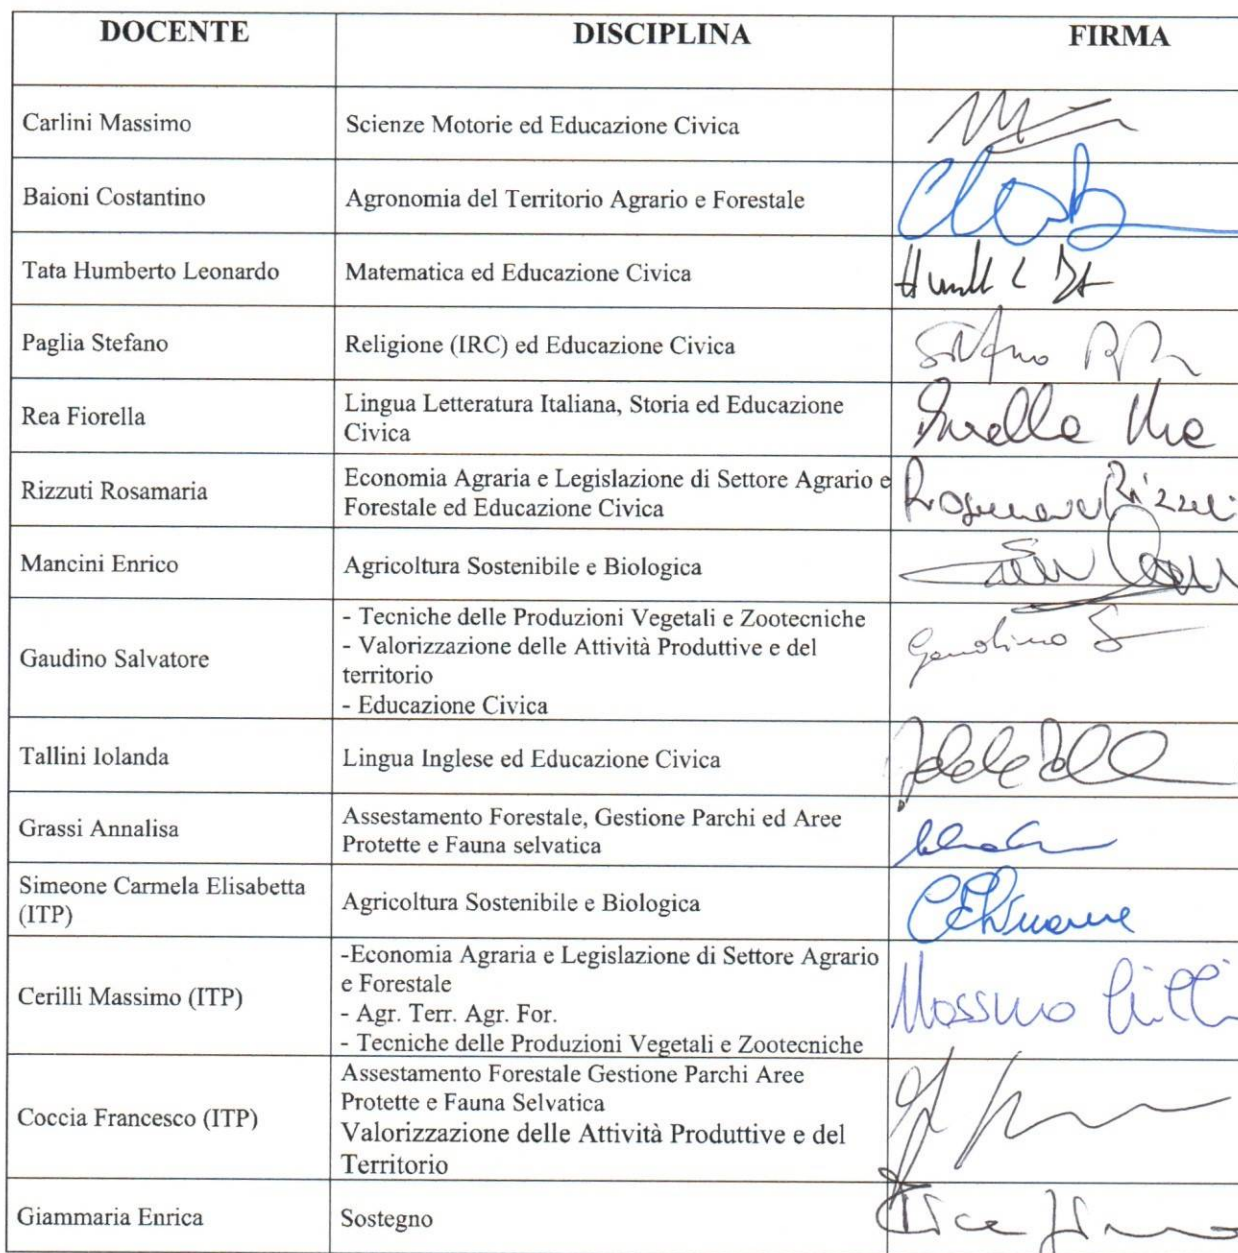 DOCENTE DISCIPLINA FIRMA
Carlini Massimo Scienze Motorie ed Educazione Civica
Baioni Costantino Agronomia del Territorio Agrario e Forestale
Tata Humberto Leonardo Matematica ed Educazione Civica
Paglia Stefano Religione (IRC) ed Educazione Civica
Rea Fiorella Lingua Letteratura Italiana, Storia ed Educazione
Civica
Rizzuti Rosamaria Economia Agraria e Legislazione di Settore Agrario e
Forestale ed Educazione Civica
Mancini Enrico Agricoltura Sostenibile e Biologica
Gaudino Salvatore - Tecniche delle Produzioni Vegetali e Zootecniche
- Valorizzazione delle Attività Produttive e del
territorio
- Educazione Civica
Tallini Iolanda Lingua Inglese ed Educazione Civica
Grassi Annalisa Assestamento Forestale, Gestione Parchi ed Aree
Protette e Fauna selvatica
Simeone Carmela Elisabetta
(ITP) Agricoltura Sostenibile e Biologica
Cerilli Massimo (ITP) -Economia Agraria e Legislazione di Settore Agrario
e Forestale
- Agr. Terr. Agr. For.
- Tecniche delle Produzioni Vegetali e Zootecniche
Massimo
Coccia Francesco (ITP) Assestamento Forestale Gestione Parchi Aree
Protette e Fauna Selvatica
Valorizzazione delle Attività Produttive e del
Territorio
Giammaria Enrica Sostegno